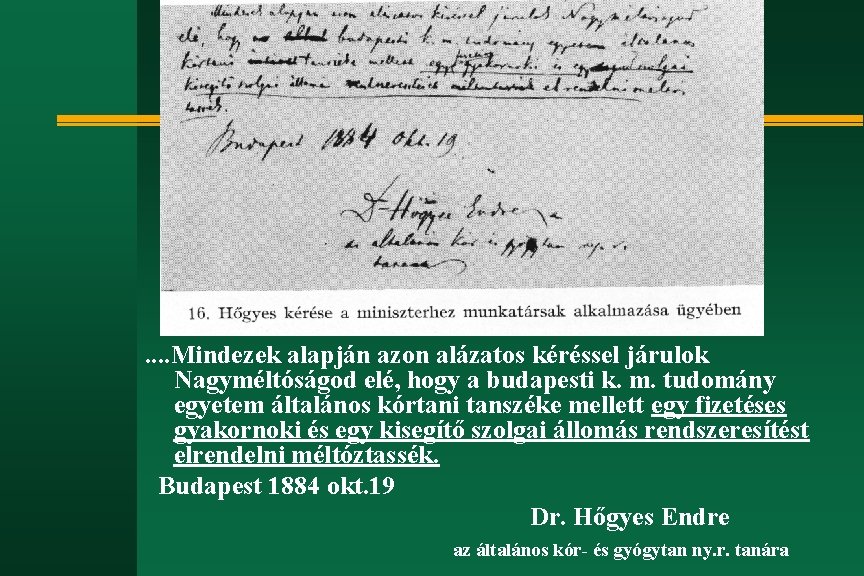 Mindezek alapján azon alázatos kéréssel járulok Nagyméltóságod
elé, hogy a budapesti k. m. tudomány egyetem általános
kórtani tanszéke mellett egy gyakornoki és egy
kisegítő szolgai állomás rendszeresítését elrendelni méltóz-
tassék.
Budapest 1884 okt. 19
Dr Hőgyes Endre
az általános kór és gyógytan ny. r.
tanára
16. Hőgyes kérése a miniszterhez munkatársak alkalmazása ügyében
....Mindezek alapján azon alázatos kéréssel járulok
Nagyméltóságod elé, hogy a budapesti k. m. tudomány
egyetem általános kórtani tanszéke mellett egy fizetéses
gyakornoki és egy kisegítő szolgai állomás rendszeresítést
elrendelni méltóztassék.
Budapest 1884 okt.19
Dr. Hőgyes Endre
az általános kór- és gyógytan ny. r. tanára